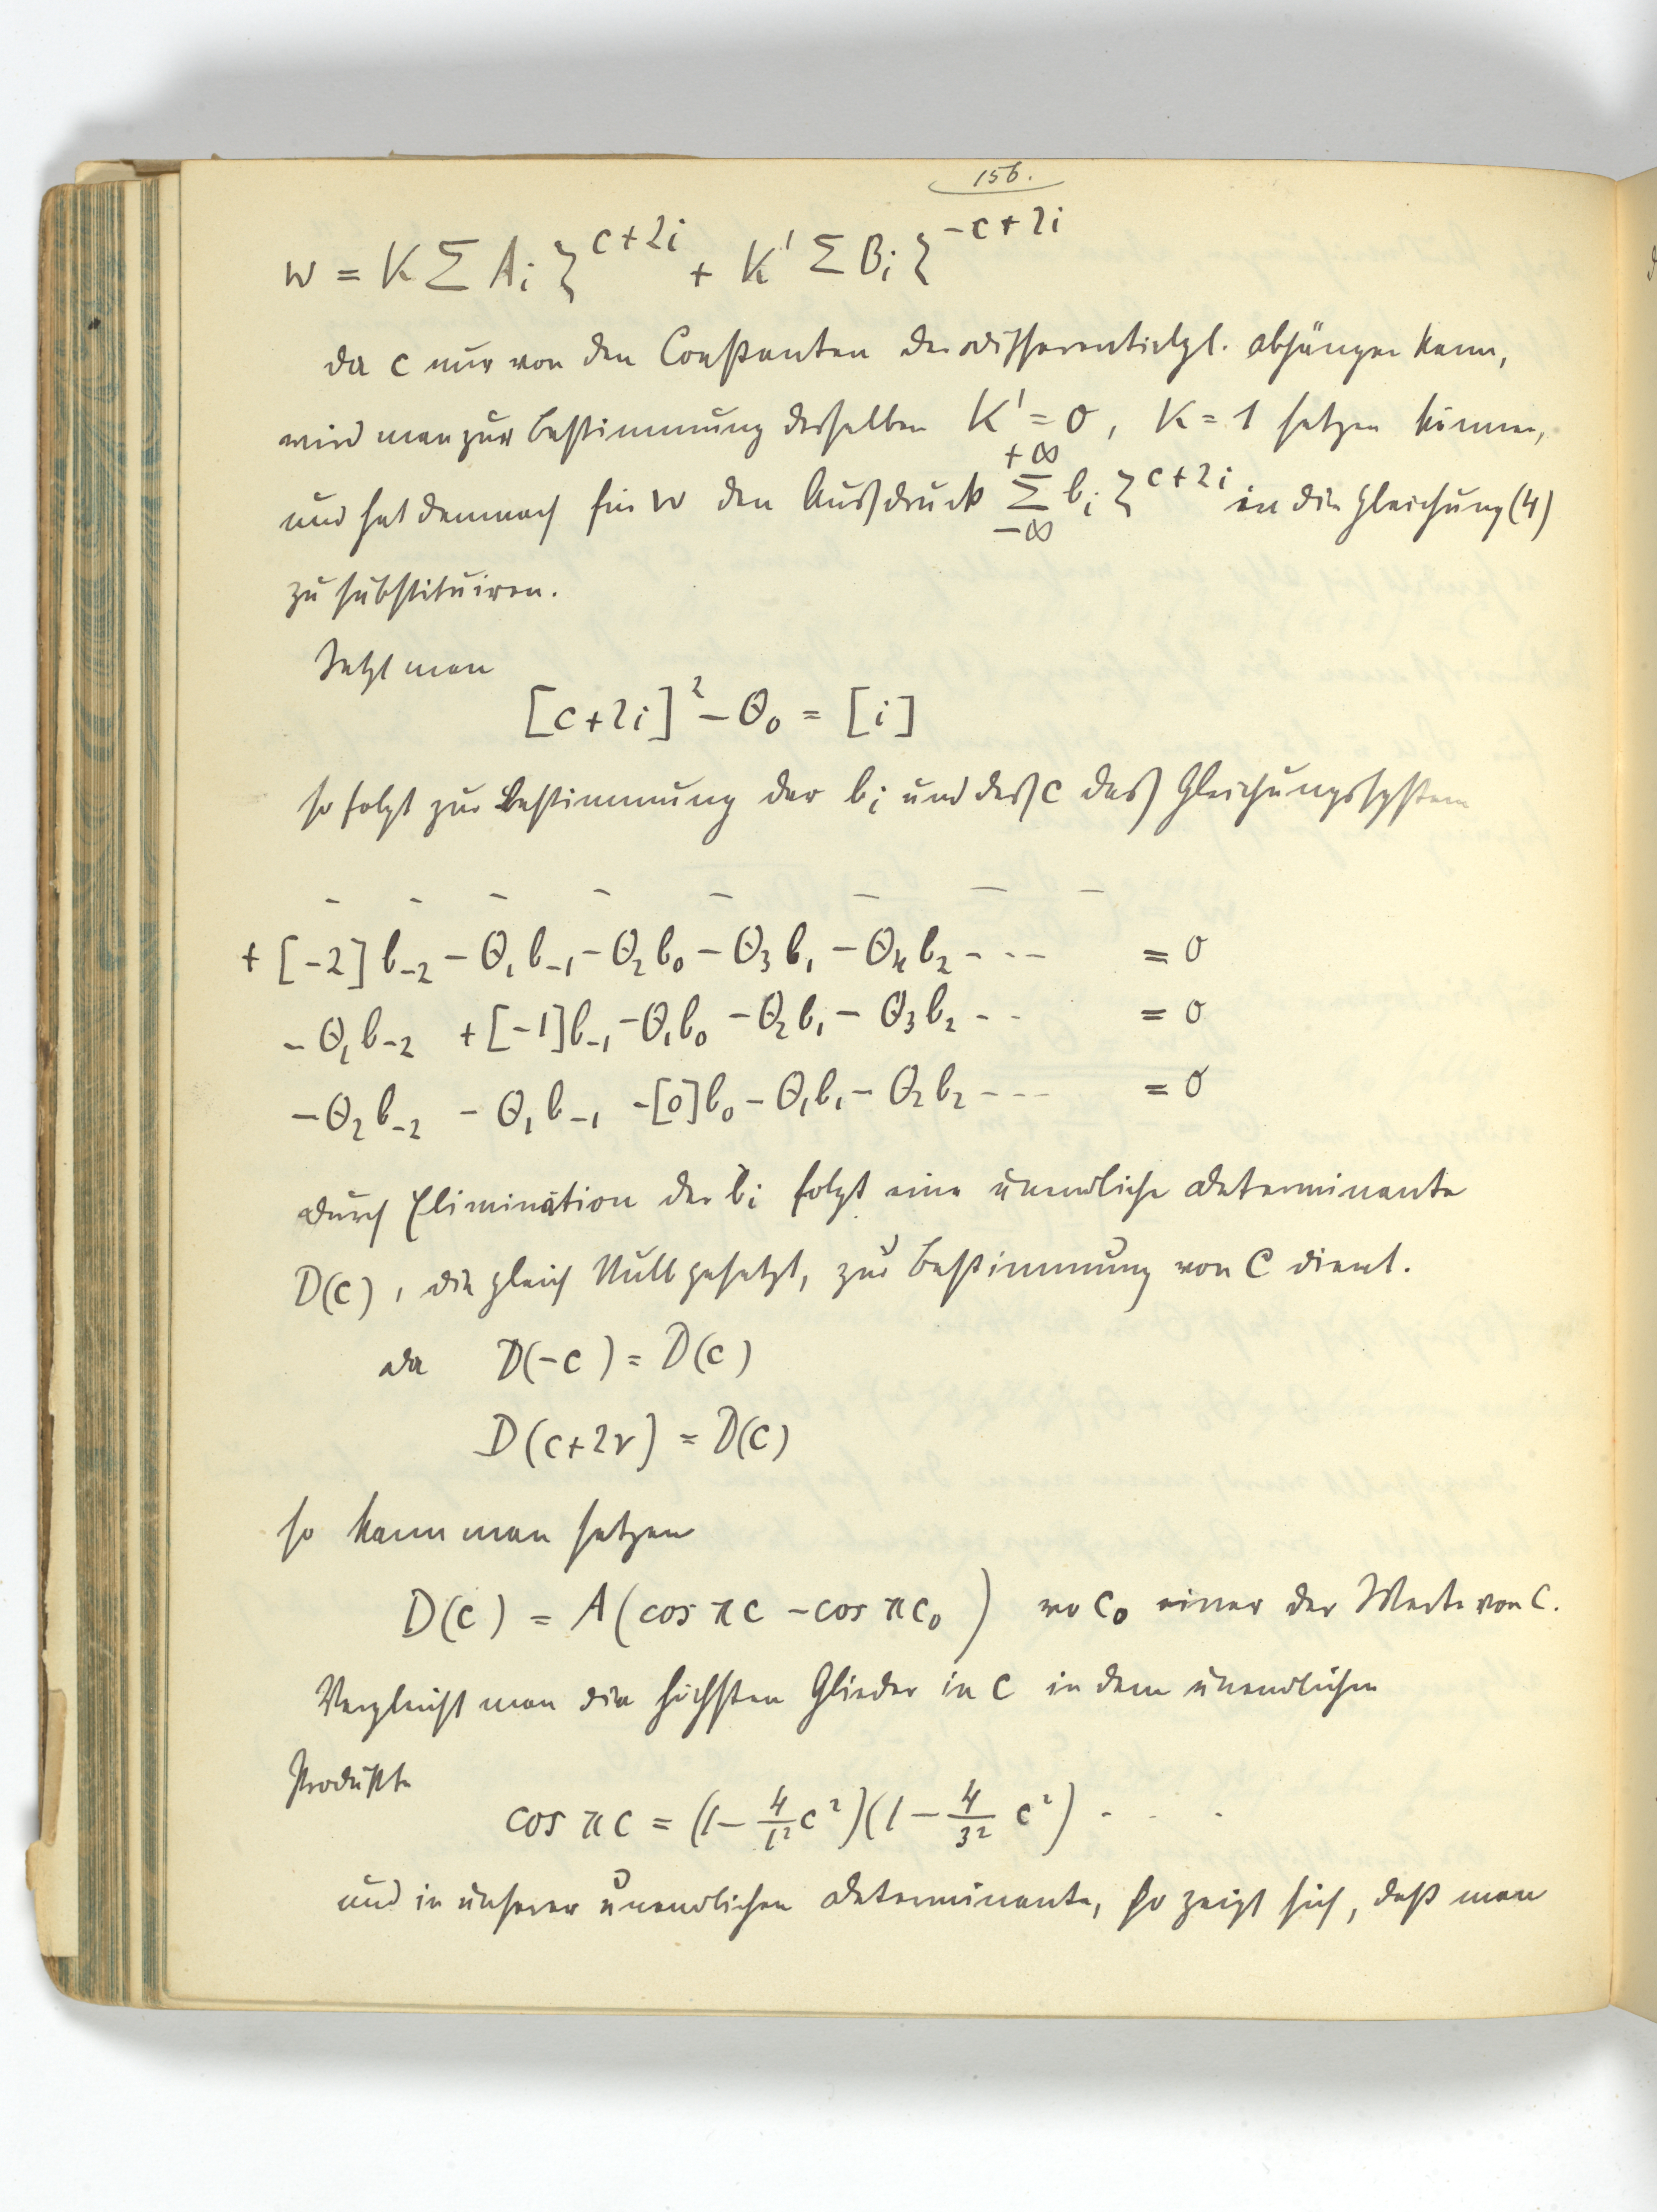 156.
w = K Σ Aᵢ ζ^{c+2i} + K' Σ Bᵢ ζ^{-c+2i}
da c nur von den Constanten der Differentialgl. abhängen kann,
wird man zur Bestimmung desselben K' = 0, K = 1 setzen können,
und hat demnach für w den Ausdruck Σ_{-∞}^{+∞} bᵢ ζ^{c+2i} in die Gleichung (4)
zu substituiren.
Setzt man
[c+2i]² − Θ₀ = [i]
so folgt zur Bestimmung der bᵢ und des c das Gleichungssystem
- - - - - - - -
+ [-2] b₋₂ − Θ₁b₋₁ − Θ₂b₀ − Θ₃b₁ − Θ₄b₂ - - - = 0
− Θ₁b₋₂ + [-1]b₋₁ − Θ₁b₀ − Θ₂b₁ − Θ₃b₂ - - = 0
− Θ₂b₋₂ − Θ₁b₋₁ − [0]b₀ − Θ₁b₁ − Θ₂b₂ - - - = 0
Durch Elimination der bᵢ folgt eine unendliche Determinante
D(c), die gleich Null gesetzt, zur Bestimmung von c dient.
Da D(-c) = D(c)
D(c+2ν) = D(c)
so kann man setzen
D(c) = A(cos πc − cos πc₀) wo c₀ einer der Werte von c.
Vergleicht man die höchsten Glieder in c in dem unendlichen
Produkte
cos πc = (1 − 4/1² c²)(1 − 4/3² c²) . . .
und in unserer unendlichen Determinante, so zeigt sich, daß man